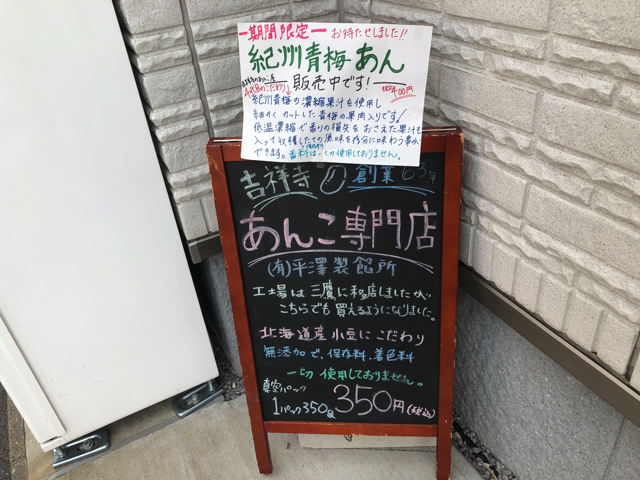 一期間限定一 お待たせしました!!
紀州青梅あん
販売中です!
4代目のこだわり
400円
紀州青梅の濃縮果汁を使用し
細かくカットした青梅の果肉入りです!
低温濃縮で香りの損失をおさえた果汁も
入って収穫したての風味を存分に味わう事が
できます。香料は一切使用しておりません。
吉祥寺の 創業63年
あんこ専門店
(有)平澤製餡所
工場は三鷹に移店しましたが
こちらでも買えるようになりました。
北海道産小豆にこだわり
無添加で、保存料、着色料
一切使用しておりません。
真空パック
1パック350g 350円(税込)